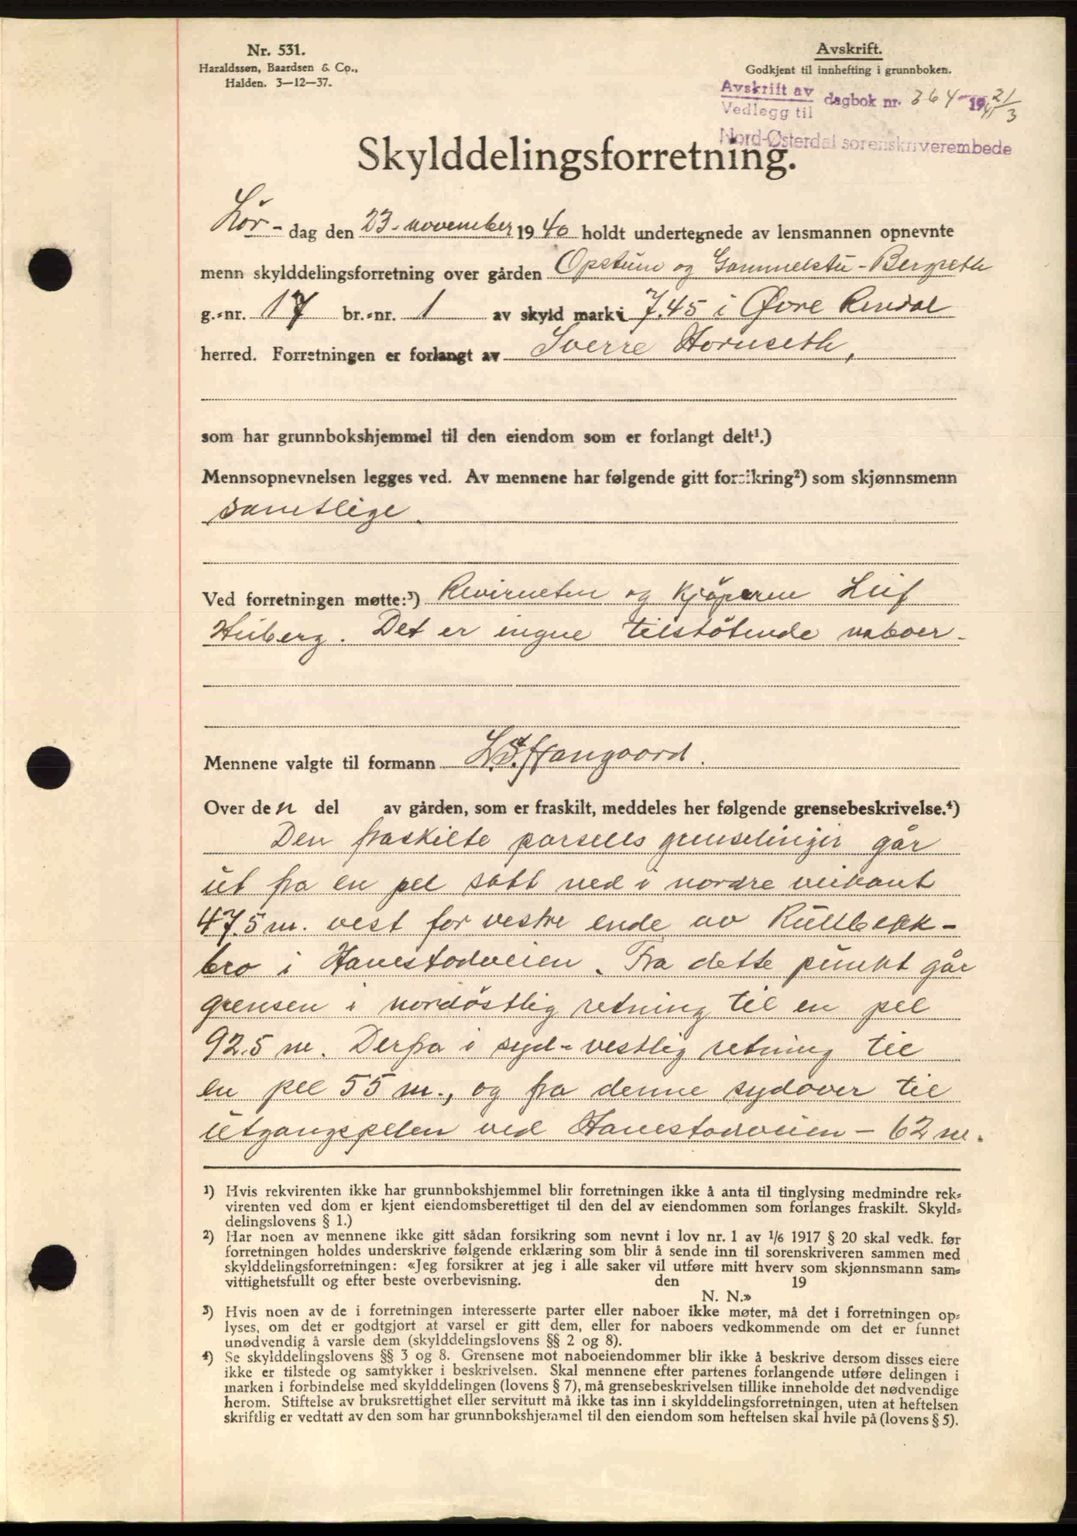 Nr. 531.
Haraldssøn, Baardsen & Co.,
Halden. 3—12—37.
Avskrift.
Godkjent til innhefting i grunnboken.
Avskrift av
Vedlegg til
dagbok nr. 364 19 41 21/3
Nord-Østerdal sorenskriverembede
Skylddelingsforretning.
Lør- dag den 23. november 1940 holdt undertegnede av lensmannen opnevnte
menn skylddelingsforretning over gården Opstum og Gammelstu-Bergseth
g.-nr. 17 br.-nr. 1 av skyld mark 7.45 i Øvre Rendal
herred. Forretningen er forlangt av Sverre Hornseth,
som har grunnbokshjemmel til den eiendom som er forlangt delt¹.)
Mennsopnevnelsen legges ved. Av mennene har følgende gitt forsikring²) som skjønnsmenn
samtlige.
Ved forretningen møtte:³) Revirenten og kjøperen Leif
Huberg. Det er ingne tilstøtende naboer.
Mennene valgte til formann
Over den del av gården, som er fraskilt, meddeles her følgende grensebeskrivelse.⁴)
Den fraskilte parsells grenselinjer går
ut fra en pel satt ned i nordre veikant
47.5 m. vest for vestre ende av Rullbekk-
bro i Hanestadveien. Fra dette punkt går
grensen i nordøstlig retning til en pel
92.5 m. Derfra i syd-vestlig retning til
en pel 55 m., og fra denne sydover til
utgangspelen ved Hanestadveien – 62 m.
¹) Hvis rekvirenten ikke har grunnbokshjemmel blir forretningen ikke å anta til tinglysing medmindre rek-
virenten ved dom er kjent eiendomsberettiget til den del av eiendommen som forlanges fraskilt. Skyld-
delingslovens § 1.)
²) Har noen av mennene ikke gitt sådan forsikring som nevnt i lov nr. 1 av 1/6 1917 § 20 skal vedk. før
forretningen holdes underskrive følgende erklæring som blir å sende inn til sorenskriveren sammen med
skylddelingsforretningen: «Jeg forsikrer at jeg i alle saker vil utføre mitt hverv som skjønnsmann sam-
vittighetsfullt og efter beste overbevisning. den 19
N. N.»
³) Hvis noen av de i forretningen interesserte parter eller naboer ikke møter, må det i forretningen op-
lyses, om det er godtgjort at varsel er gitt dem, eller for naboers vedkommende om det er funnet
unødvendig å varsle dem (skylddelingslovens §§ 2 og 8).
⁴) Se skylddelingslovens §§ 3 og 8. Grensene mot naboeiendommer blir ikke å beskrive dersom disses eiere
ikke er tilstede og samtykker i beskrivelsen. Skal mennene efter partenes forlangende utføre delingen i
marken i forbindelse med skylddelingen (lovens § 7), må grensebeskrivelsen tillike inneholde det nødvendige
herom. Stiftelse av bruksrettighet eller servitutt må ikke tas inn i skylddelingsforretningen, uten at heftelsen
skriftlig er vedtatt av den som har grunnbokshjemmel til den eiendom som heftelsen skal hvile på (lovens § 5).